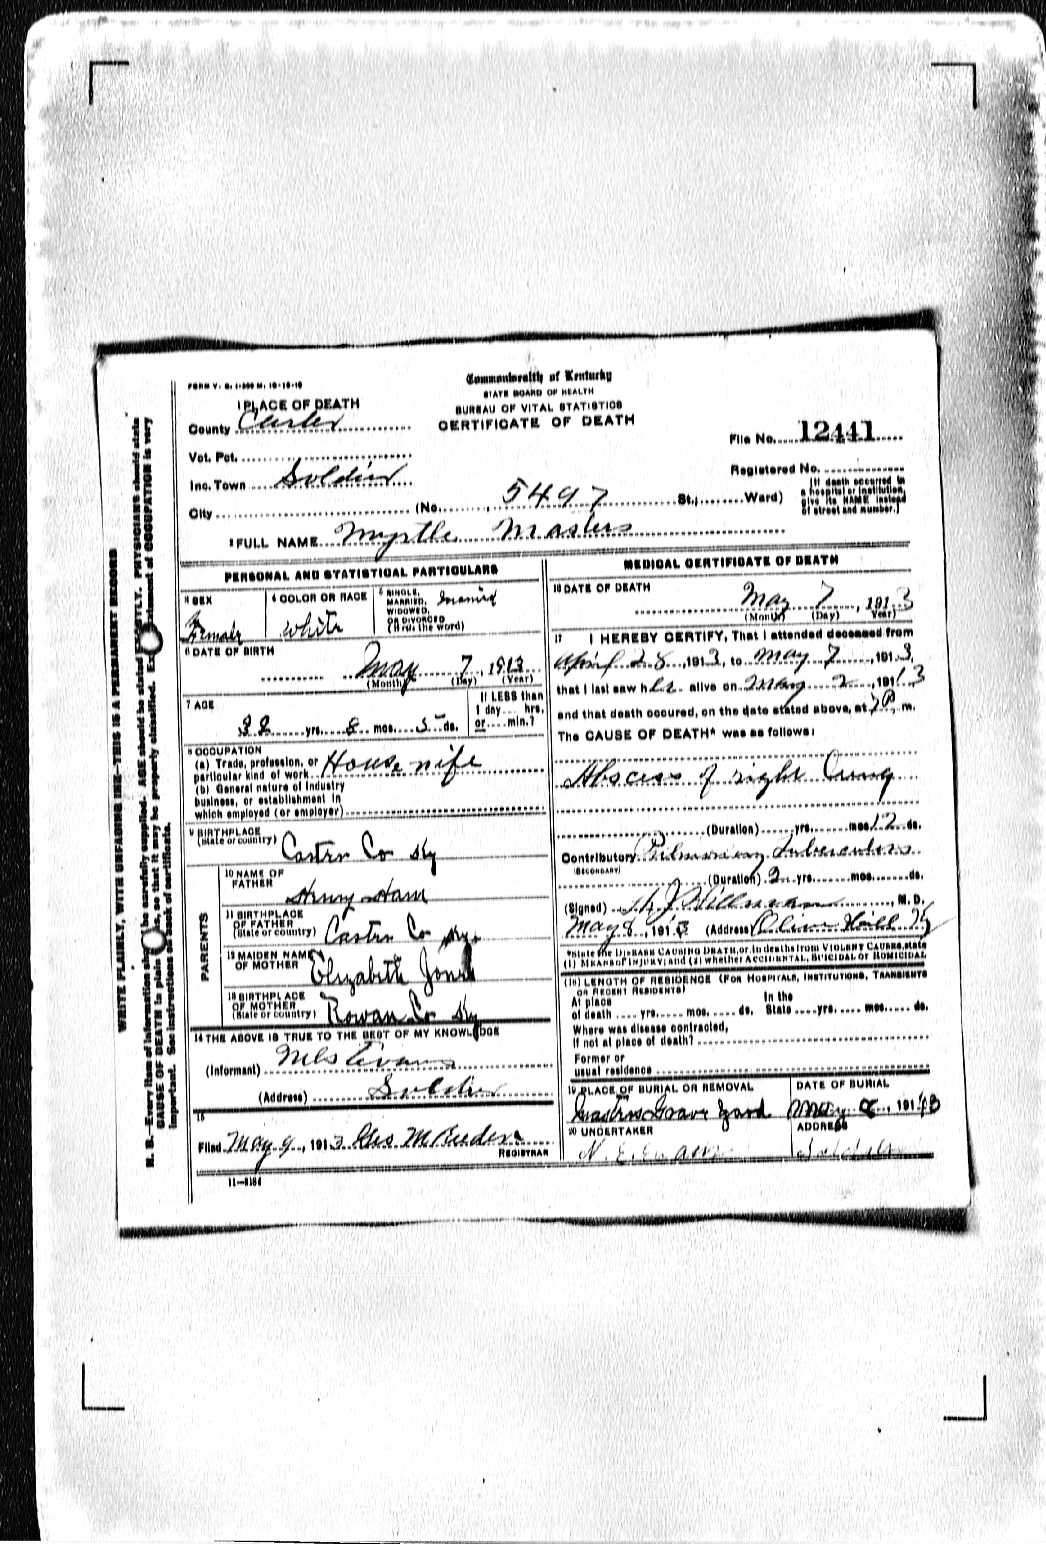 FORM V. S. 1-300 M. 10-18-10
Commonwealth of Kentucky
STATE BOARD OF HEALTH
BUREAU OF VITAL STATISTICS
CERTIFICATE OF DEATH
1 PLACE OF DEATH
County Carter
Vot. Pct.
Inc. Town Soldier
City (No. 5497 St.; Ward)
File No. 12441
Registered No.
[If death occurred in
a hospital or institution,
give its NAME instead
of street and number.]
2 FULL NAME Myrtle Masters
PERSONAL AND STATISTICAL PARTICULARS
3 SEX
Female
4 COLOR OR RACE
White
5 SINGLE,
MARRIED,
WIDOWED,
OR DIVORCED
(Write the word)
Married
6 DATE OF BIRTH
May 7, 1913
(Month) (Day) (Year)
7 AGE
32 yrs. 8 mos. 5 ds.
If LESS than
1 day hrs.
or min.?
8 OCCUPATION
(a) Trade, profession, or
particular kind of work House wife
(b) General nature of industry
business, or establishment in
which employed (or employer)
9 BIRTHPLACE
(State or country) Carter Co Ky
PARENTS
10 NAME OF
FATHER Henry Ham
11 BIRTHPLACE
OF FATHER
(State or country) Carter Co Ky.
12 MAIDEN NAME
OF MOTHER Elizabeth Jones
13 BIRTHPLACE
OF MOTHER
(State or country) Rowan Co Ky
14 THE ABOVE IS TRUE TO THE BEST OF MY KNOWLEDGE
(Informant) Mls Evans
(Address) Soldier
15
Filed May 9, 1913
REGISTRAR
11-3184
MEDICAL CERTIFICATE OF DEATH
16 DATE OF DEATH
May 7, 1913
(Month) (Day) Year)
17 I HEREBY CERTIFY, That I attended deceased from
April 28, 1913, to May 7, 1913,
that I last saw her alive on May 2, 1913
and that death occured, on the date stated above, at 7 P m.
The CAUSE OF DEATH* was as follows:
Abscess of right Lung
(Duration) yrs. mos. 12 ds.
Contributory Pulmonary Tuberculosis
(SECONDARY)
(Duration) 2 yrs. mos. ds.
(Signed) Hillman, M. D.
May 8, 1913 (Address) Olive Hill Ky
*State the DISEASE CAUSING DEATH, or, in deaths from VIOLENT CAUSES, state
(1) MEANS of INJURY; and (2) whether ACCIDENTAL, SUICIDAL or HOMICIDAL
(18) LENGTH OF RESIDENCE (FOR HOSPITALS, INSTITUTIONS, TRANSIENTS
OR RECENT RESIDENTS)
At place In the
of death yrs. mos. ds. State yrs. mos. ds.
Where was disease contracted,
if not at place of death?
Former or
usual residence
19 PLACE OF BURIAL OR REMOVAL
Masters Grave Yard
DATE OF BURIAL
May 8, 1913
20 UNDERTAKER
N. E. Evans
ADDRESS
Soldier
WRITE PLAINLY, WITH UNFADING INK—THIS IS A PERMANENT RECORD
N. B.—Every item of information should be carefully supplied. AGE should be stated EXACTLY. PHYSICIANS should state
CAUSE OF DEATH in plain terms, so that it may be properly classified. Exact statement of OCCUPATION is very
important. See instructions on back of certificate.